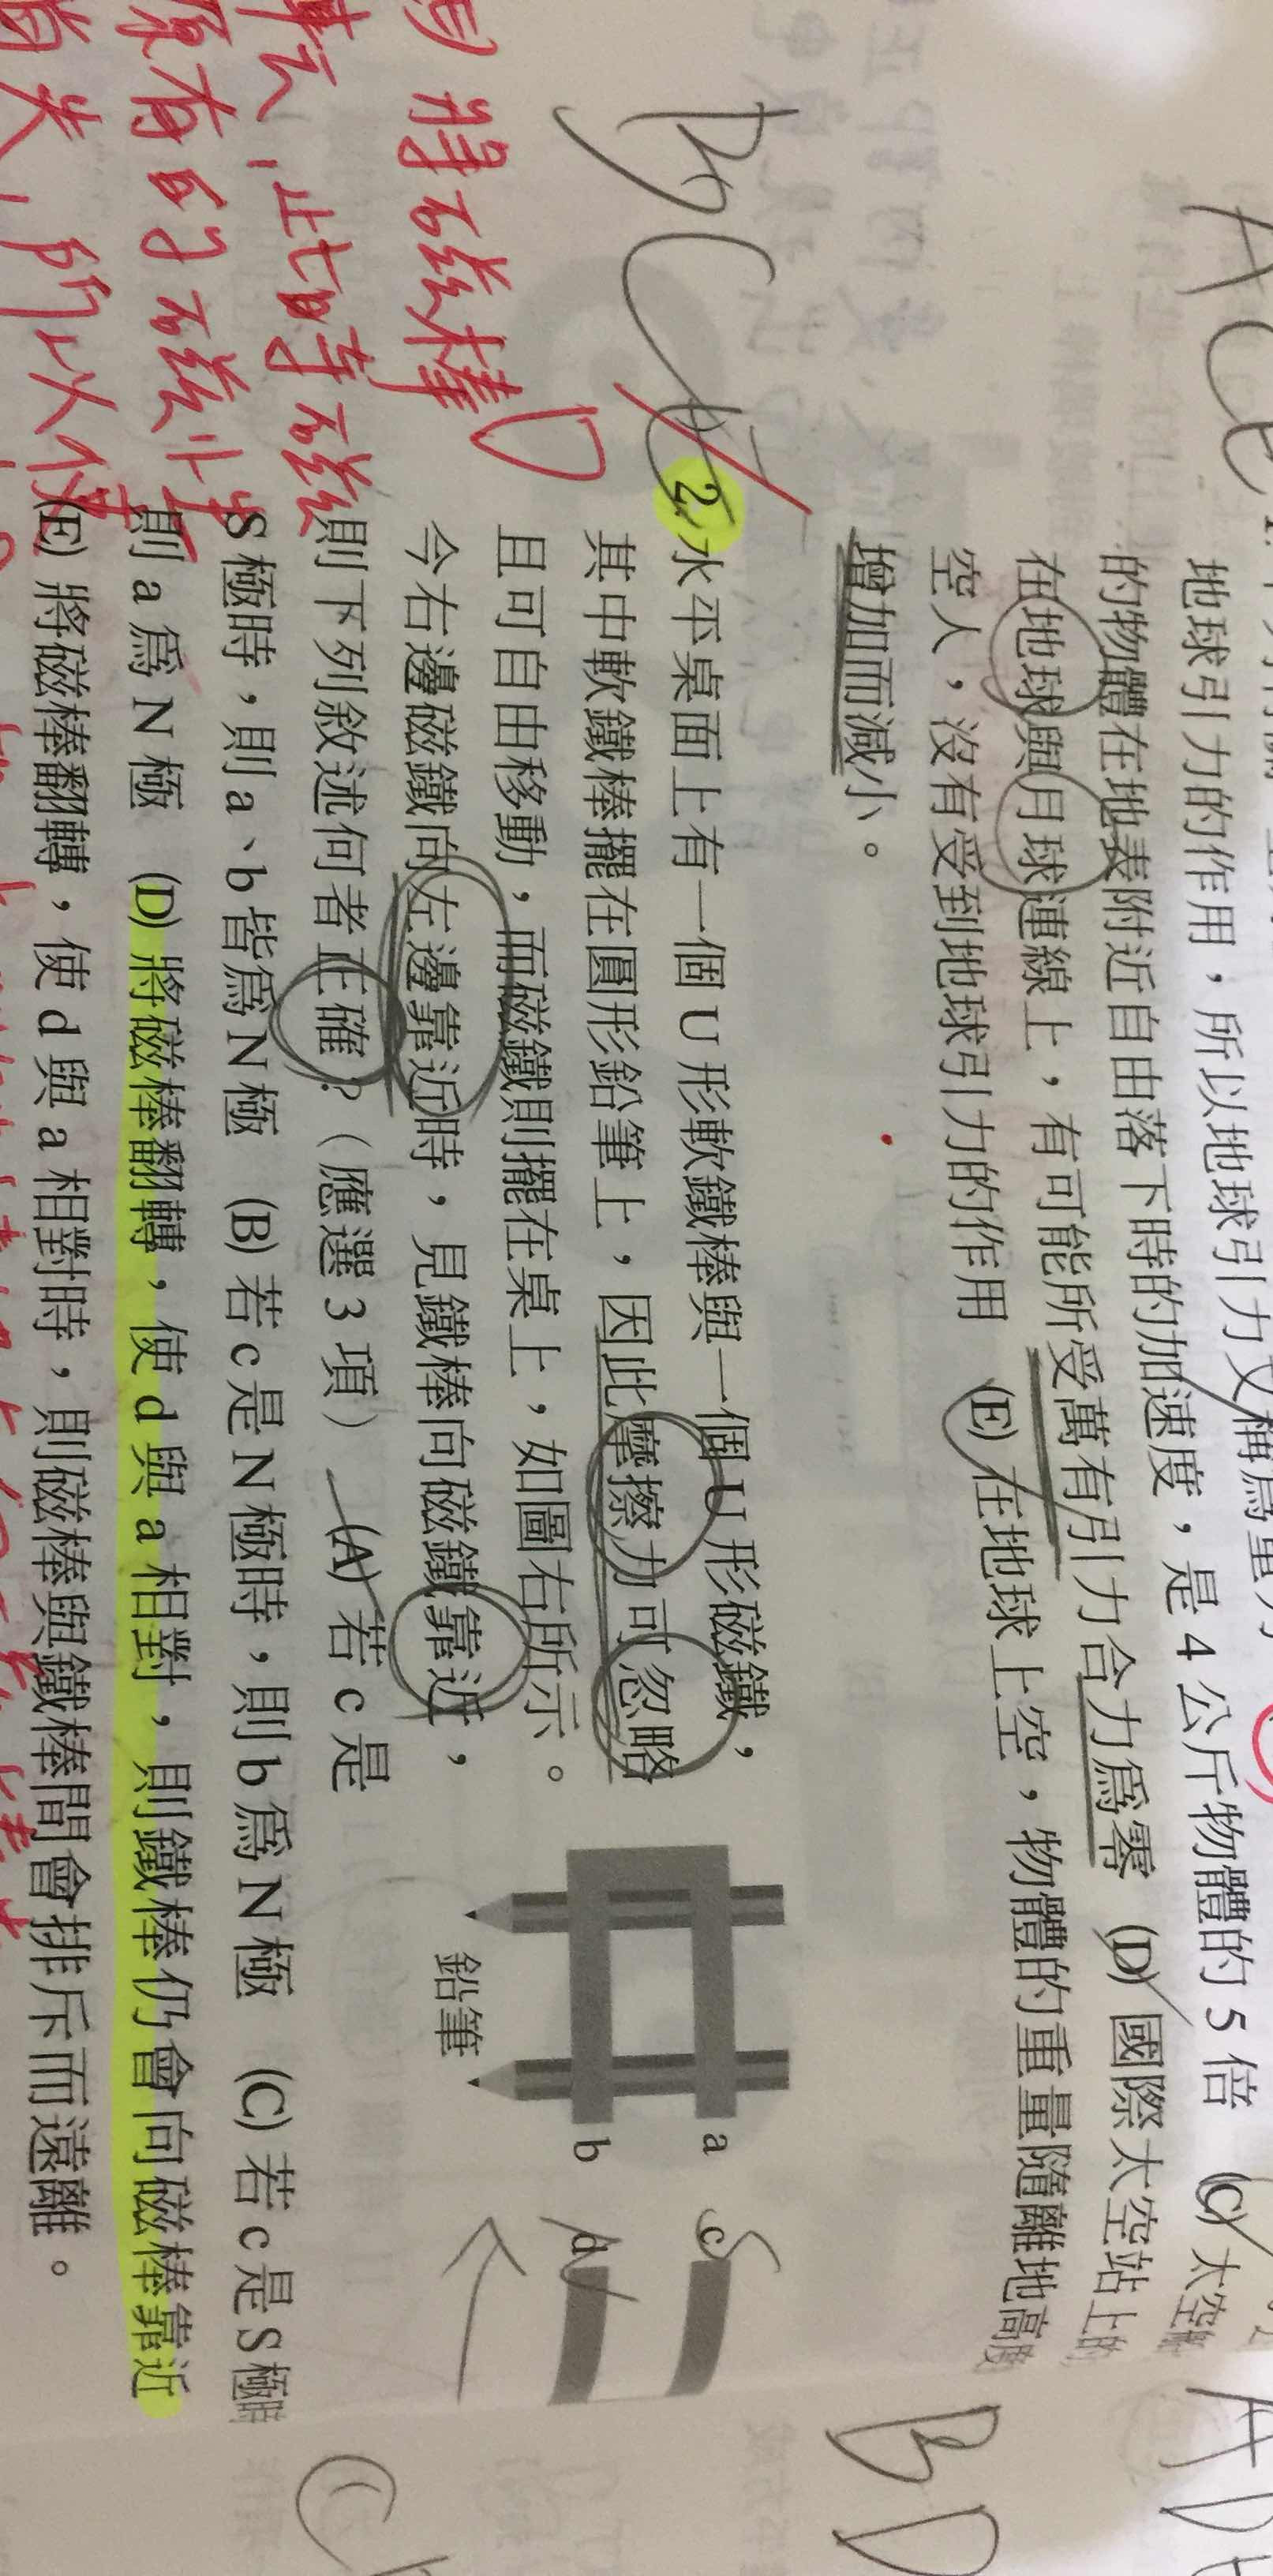 地球引力的作用,所以地球引力又稱爲重力
的物體在地表附近自由落下時的加速度,是 4 公斤物體的 5 倍 (C) 太空船
在地球與月球連線上,有可能所受萬有引力合力爲零 (D) 國際太空站上的
空人,沒有受到地球引力的作用 (E) 在地球上空,物體的重量隨離地高度
增加而減小。
ACE
BCD
2. 水平桌面上有一個 U 形軟鐵棒與一個 U 形磁鐵,
其中軟鐵棒擺在圓形鉛筆上,因此摩擦力可忽略
且可自由移動,而磁鐵則擺在桌上,如圖右所示。
今右邊磁鐵向左邊靠近時,見鐵棒向磁鐵靠近,
則下列敘述何者正確?(應選 3 項) (A) 若 c 是
S 極時,則 a、b 皆爲 N 極 (B) 若 c 是 N 極時,則 b 爲 N 極 (C) 若 c 是 S 極時
則 a 爲 N 極 (D) 將磁棒翻轉,使 d 與 a 相對,則鐵棒仍會向磁棒靠近
(E) 將磁棒翻轉,使 d 與 a 相對時,則磁棒與鐵棒間會排斥而遠離。
a
b
c
d
S
N
鉛筆
將磁棒
轉,此時磁
原有的磁
消失,所以
BD